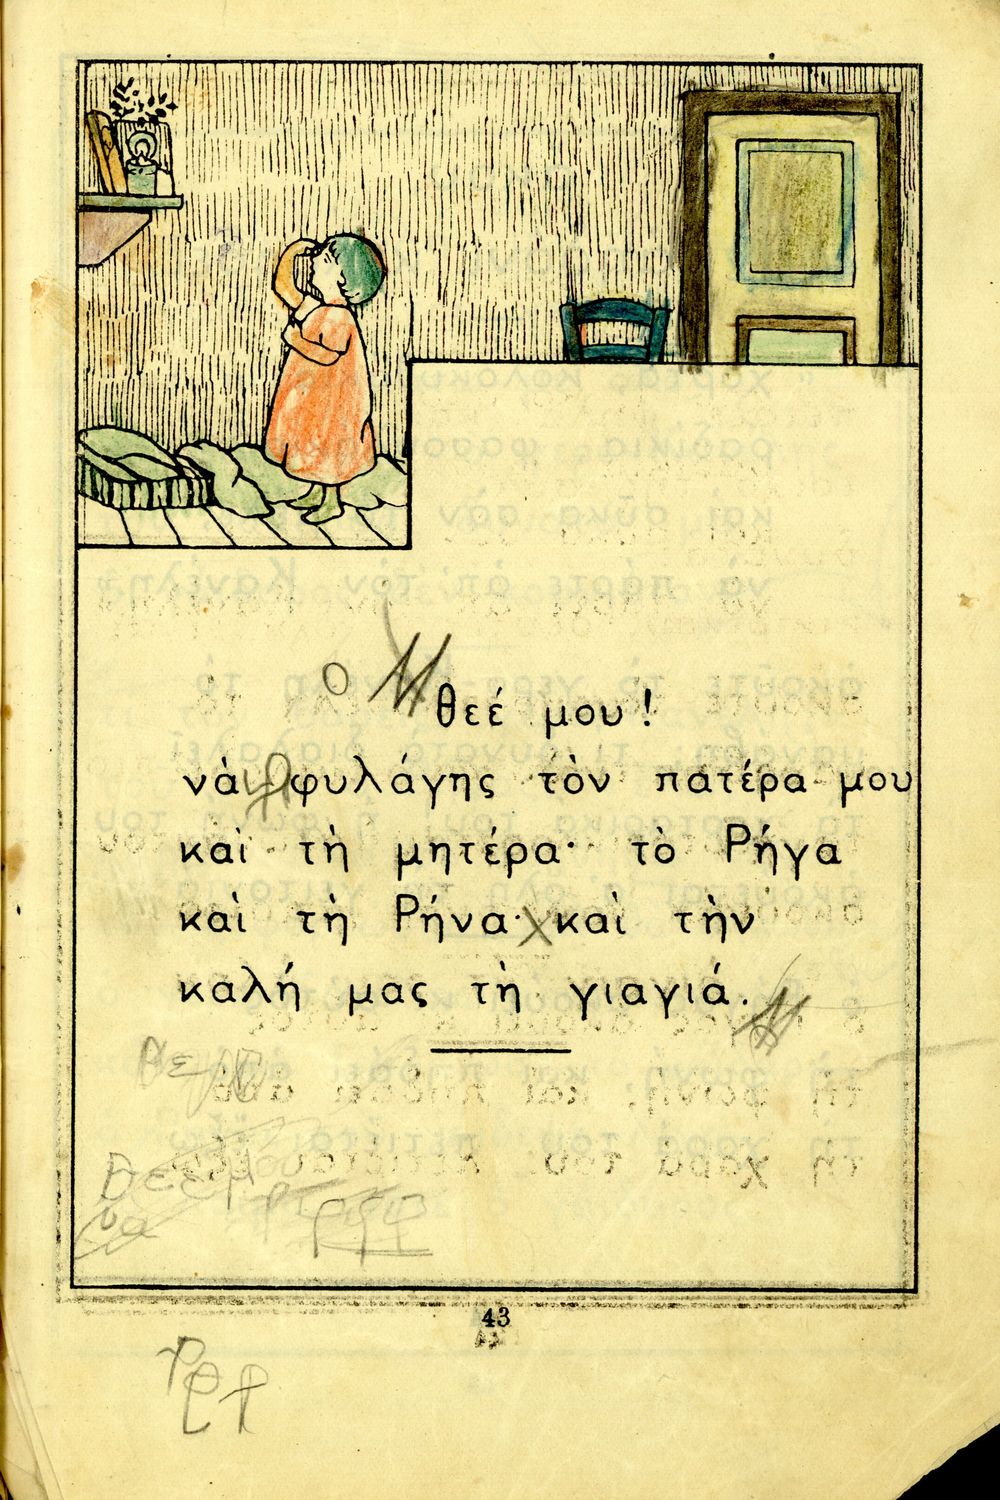 θεέ μου!
νὰ φυλάγῃς τὸν πατέρα μου
καὶ τὴ μητέρα· τὸ Ρήγα
καὶ τὴ Ρήνα· καὶ τὴν
καλή μας τὴ γιαγιά.
43